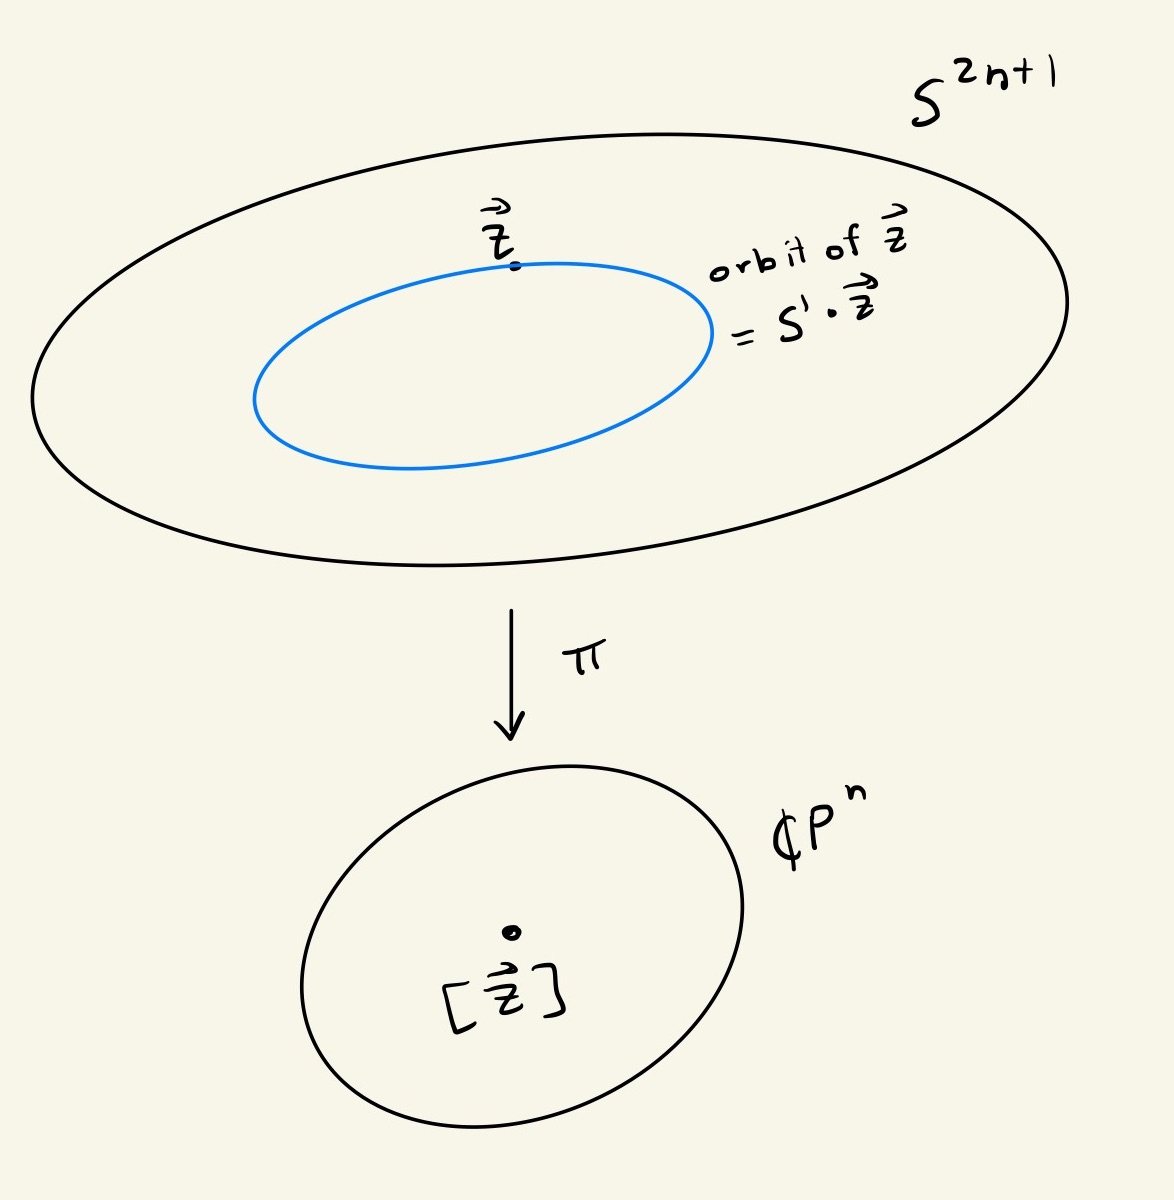 S²ⁿ⁺¹
z⃗
orbit of z⃗
= S¹ · z⃗
π
ℂPⁿ
[z⃗]